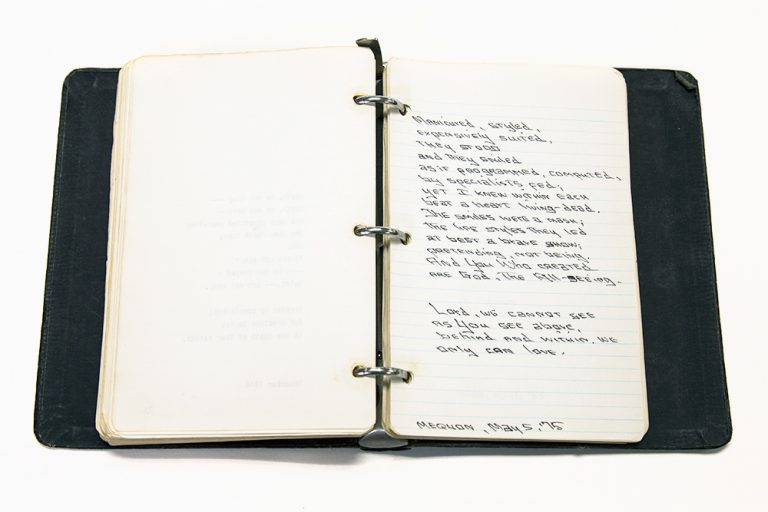 Manicured, styled,
expensively suited,
they stood
and they smiled
as if programmed, computed,
by specialists fed;
yet I knew within each
beat a heart living-dead.
The smiles were a mask;
the life styles they led
at best a brave show;
pretending, not being.
And You Who created
are God, The All-seeing.
Lord, we cannot see
as You see above,
behind and within. We
only can love.
Mequon, May 5, '75